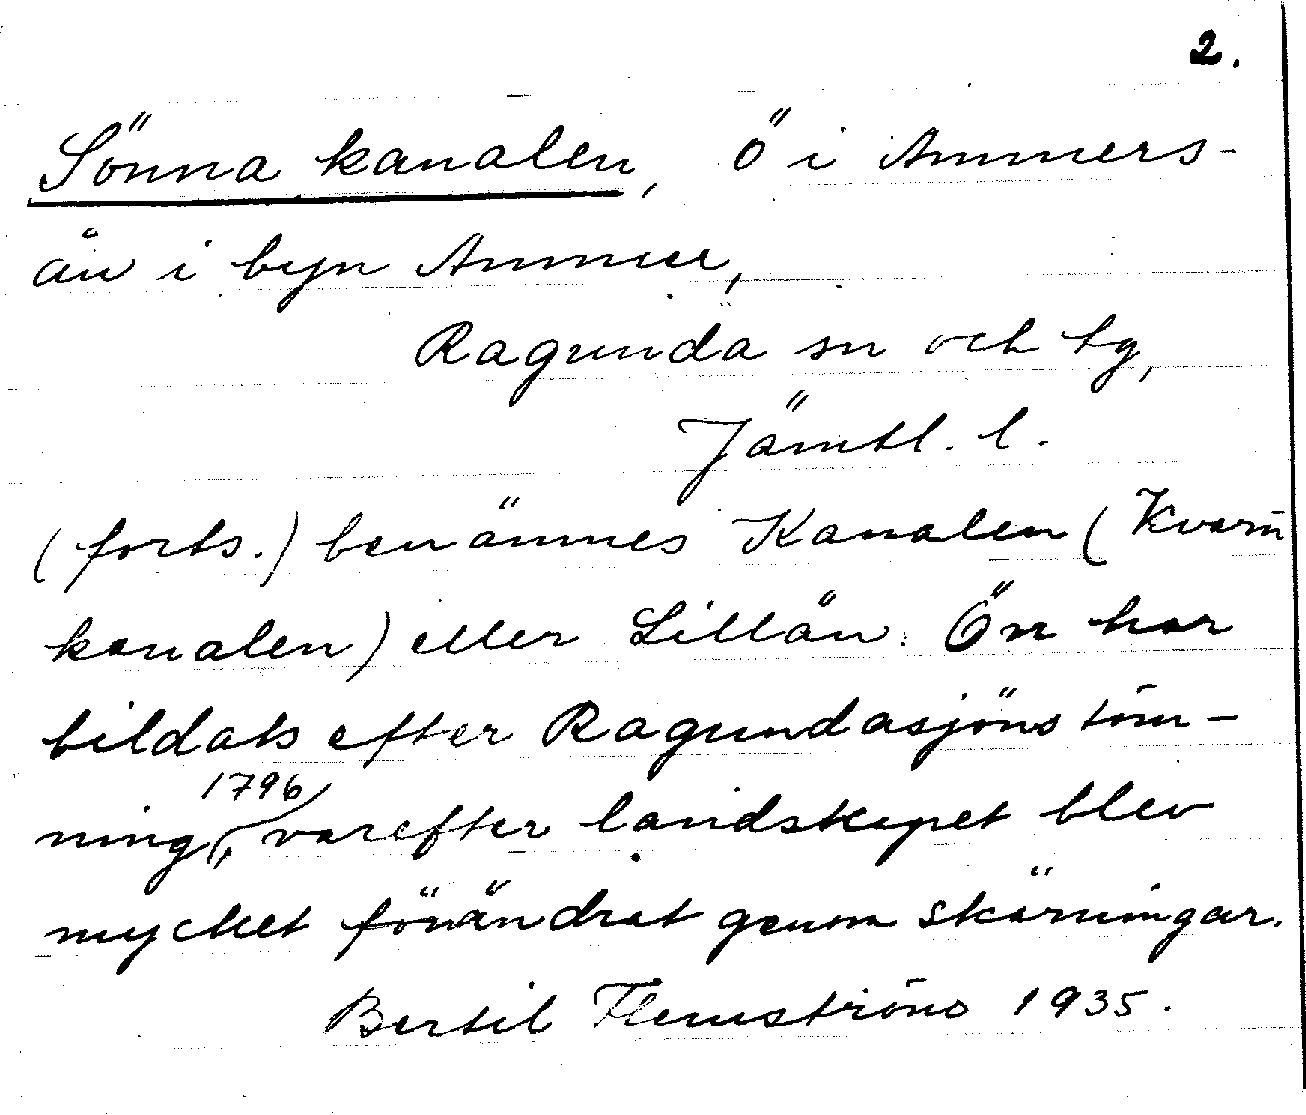 2.
Sönna kanalen, ö i Ammers-
ån i byn Ammer,
Ragunda sn och tg,
Jämtl. l.
(forts.) benämnes Kanalen (Kvarn
kanalen) eller Lillån. Ön har
bildats efter Ragundasjöns töm-
ning 1796, varefter landskapet blev
mycket förändrat genom skärningar.
Bertil Flemström 1935.